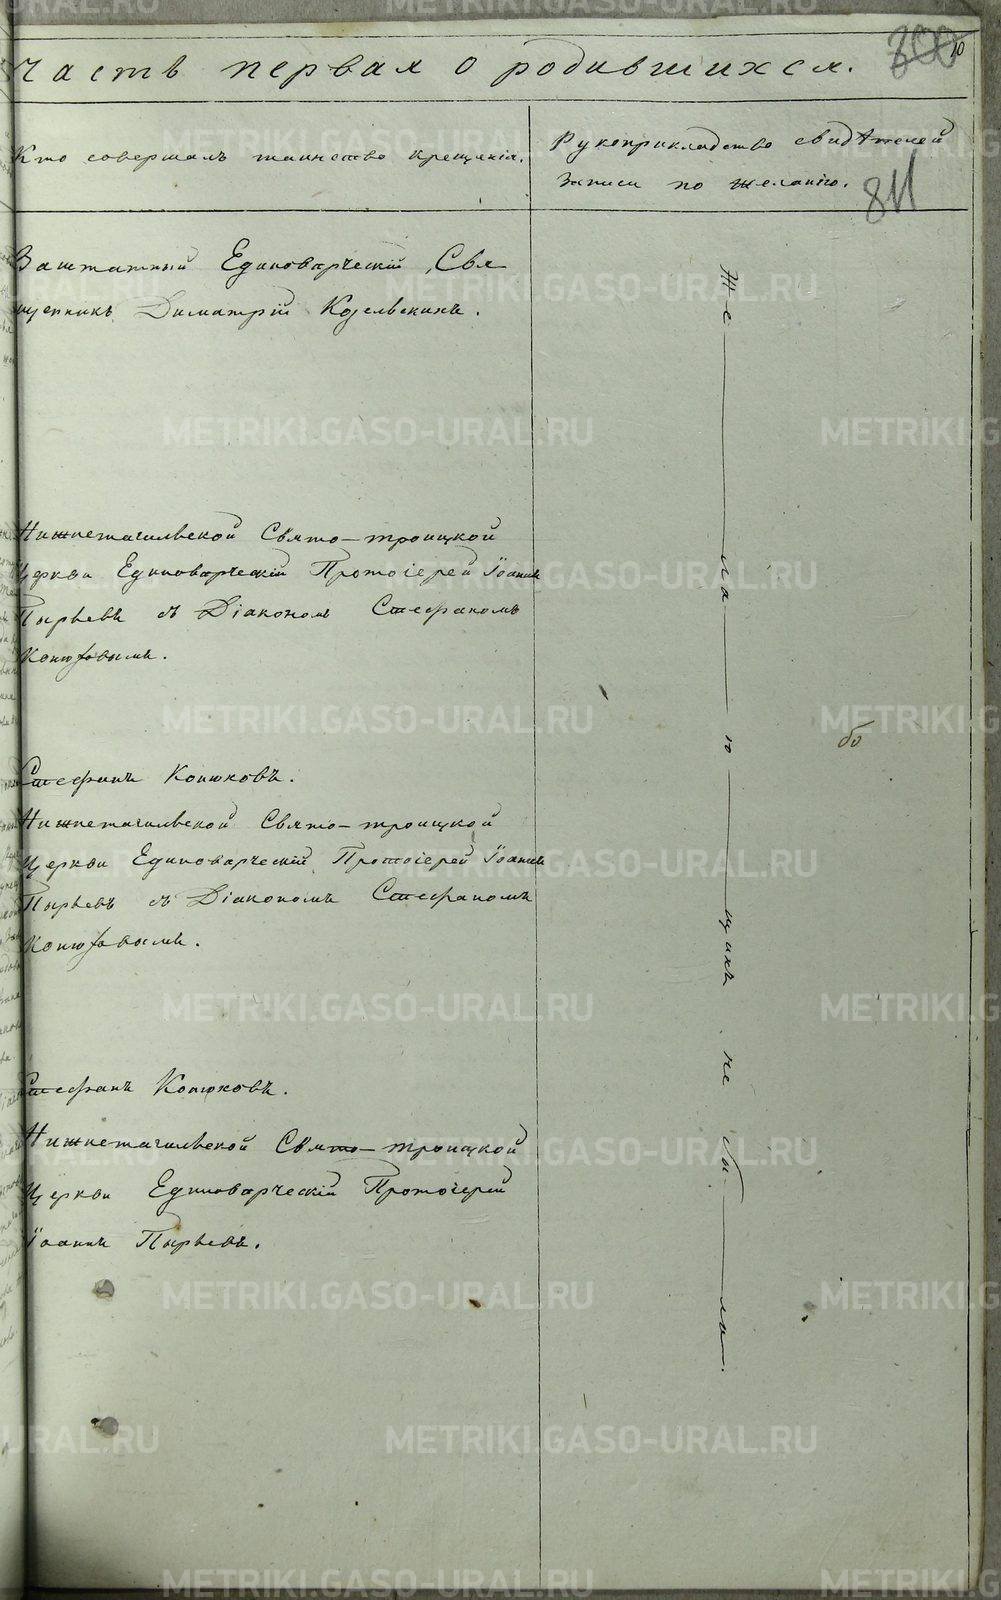 Часть первая о родившихся.
800
10
Кто совершалъ таинство крещенія.
Рукоприкладство свидѣтелей
записи по желанію.
811
Заштатный Единовѣрческій Свя
щенникъ Димитрій Козельскихъ.
Нижнетагильской Свято-троицкой
Церкви Единовѣрческій Протоіерей Іоаннъ
Пырьевъ съ Діакономъ Стефаномъ
Конюховымъ.
Стефанъ Конюховъ.
Нижнетагильской Свято-троицкой
Церкви Единовѣрческій Протоіерей Іоаннъ
Пырьевъ съ Діакономъ Стефаномъ
Конюховымъ.
Стефанъ Конюховъ.
Нижнетагильской Свято-троицкой
Церкви Единовѣрческій Протоіерей
Іоаннъ Пырьевъ.
Же — ла — ю — щихъ не бы — ло.
METRIKI.GASO-URAL.RU